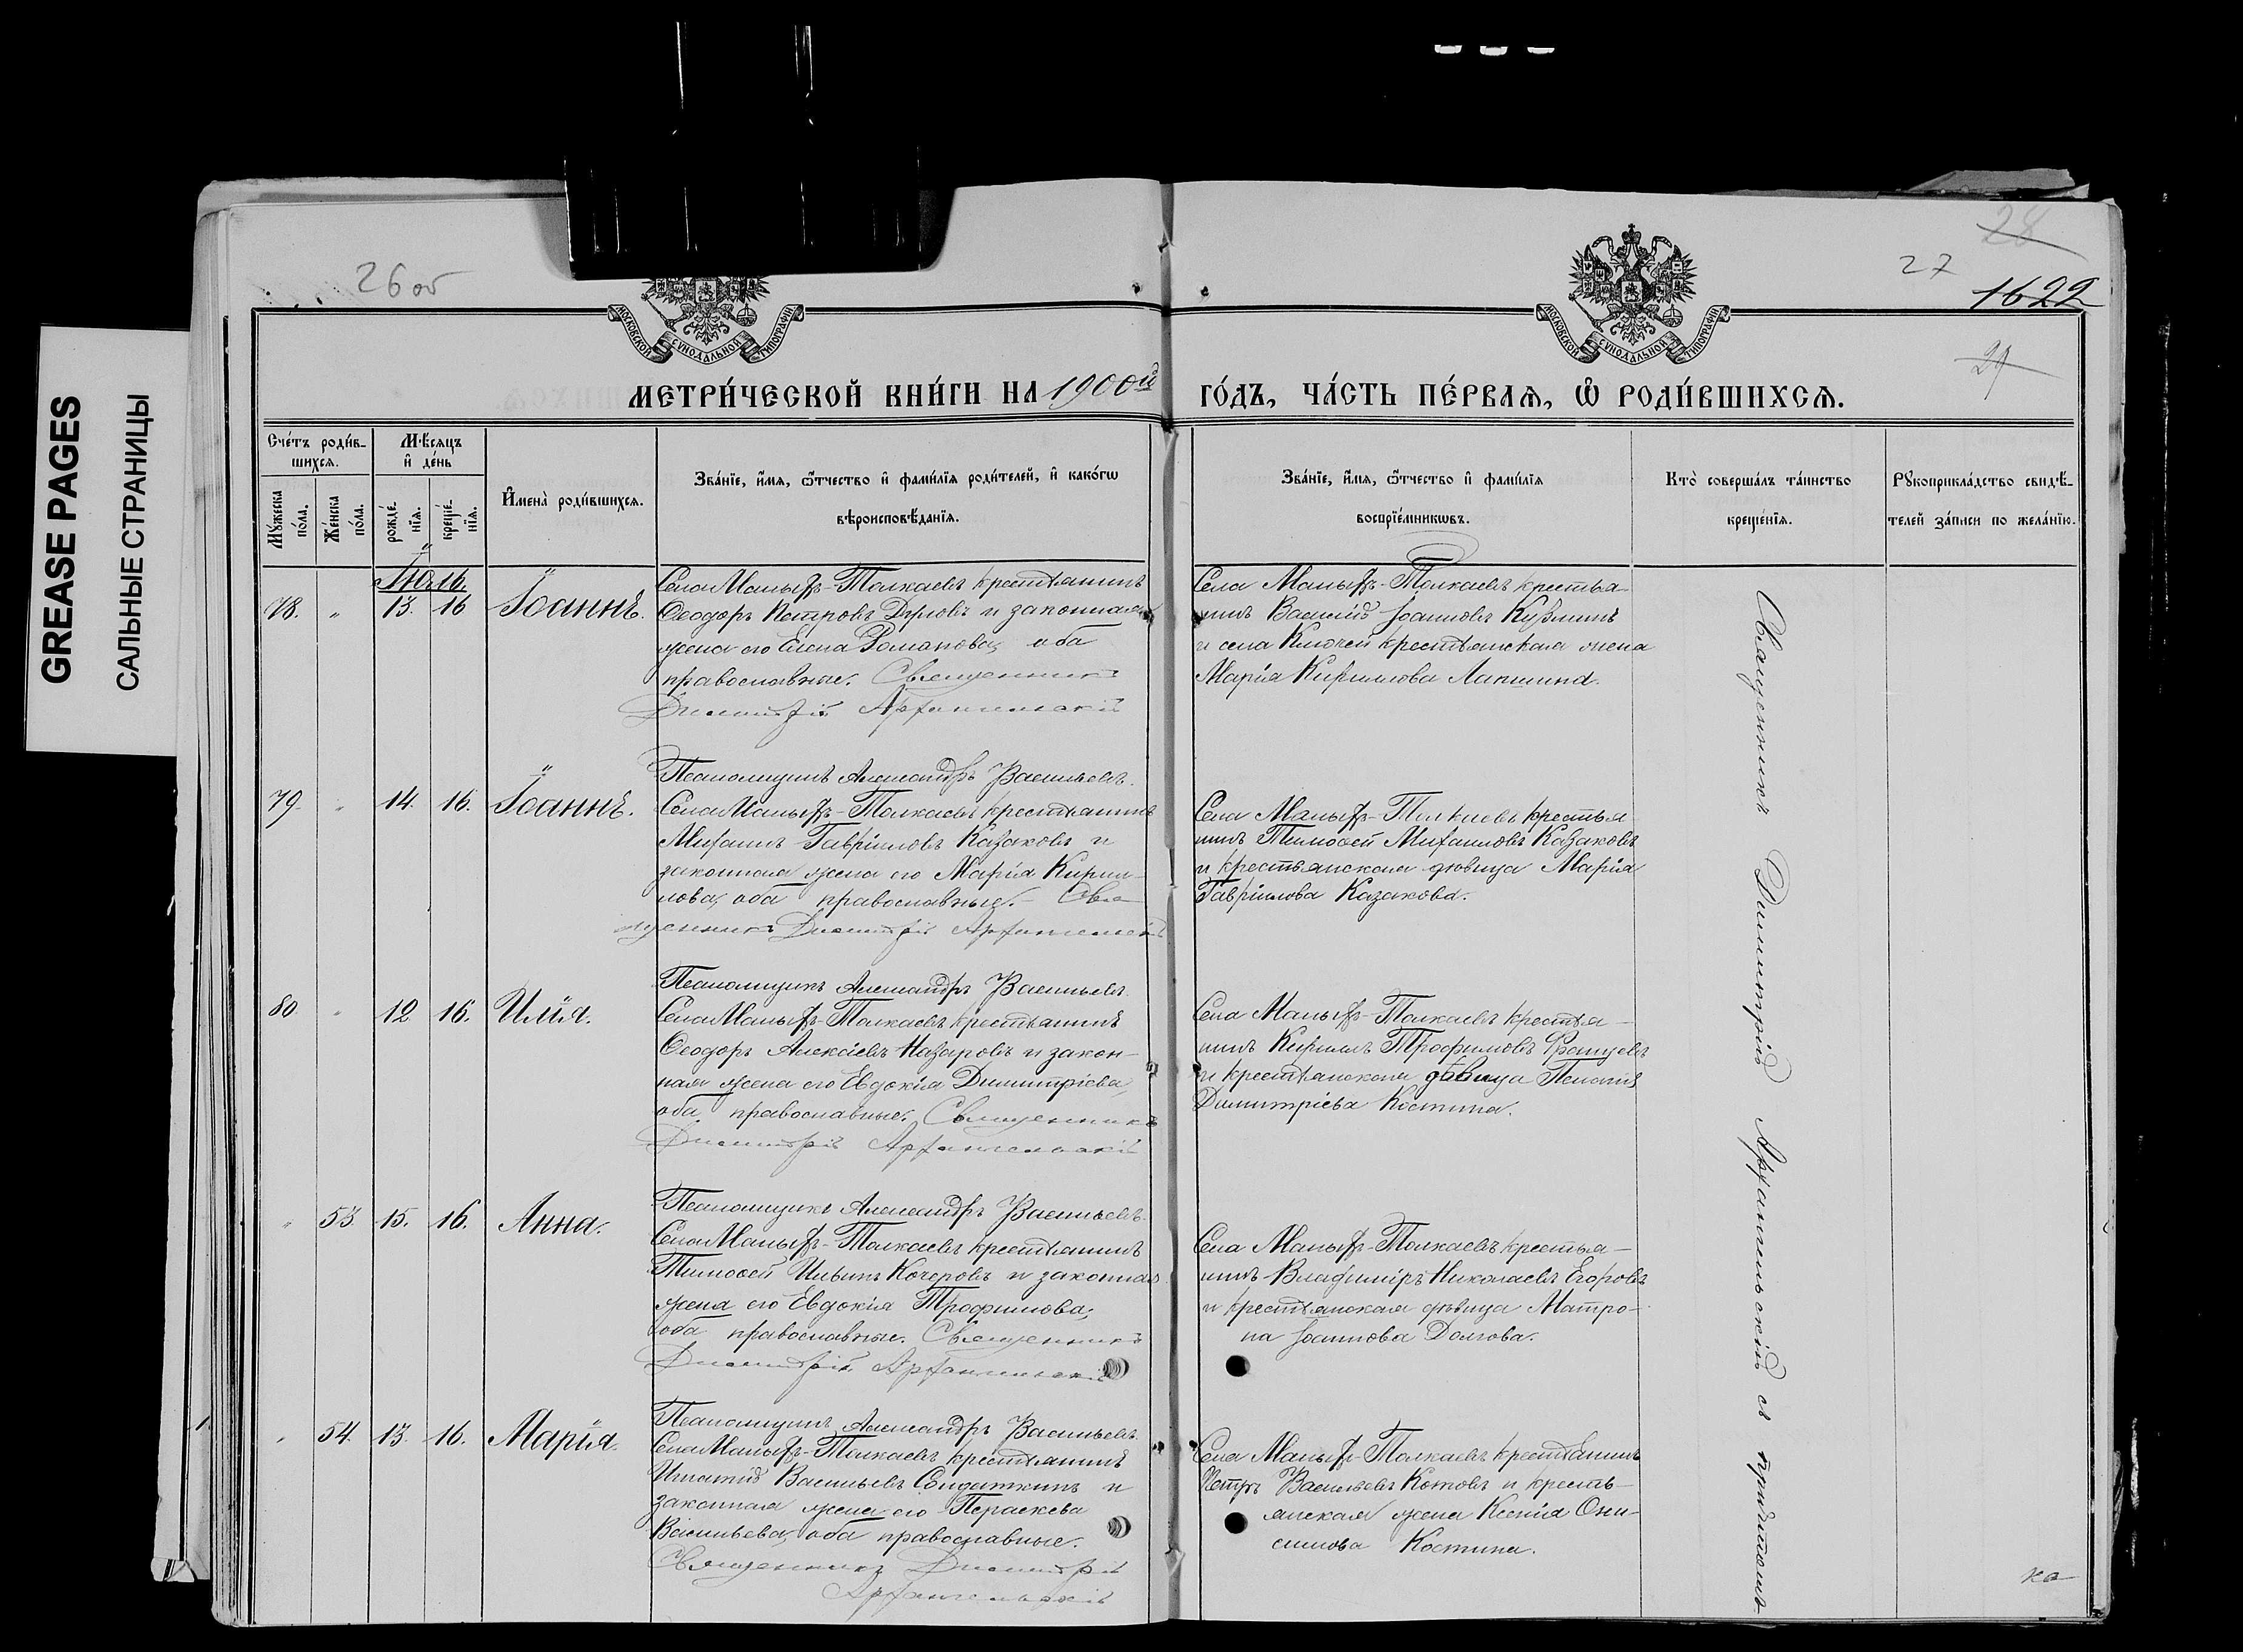 GREASE PAGES
САЛЬНЫЕ СТРАНИЦЫ
26 об
28
27
1622
29
МОСКОВСКОЙ СѴНОДАЛЬНОЙ ТИПОГРАФІИ
МОСКОВСКОЙ СѴНОДАЛЬНОЙ ТИПОГРАФІИ
МЕТРИ́ЧЕСКОЙ КНИ́ГИ НА 1900й ГО́ДЪ, ЧА́СТЬ ПЕ́РВАЯ, Ѡ҆ РОДИ́ВШИХСЯ.
Сче́тъ роди́в-
шихся.
Мѣ́сяцъ
и҆ де́нь
Мꙋ́жеска
по́ла.
Же́нска
по́ла.
рожде́-
нїя.
креще́-
нїя.
И҆мена̀ роди́вшихся.
Зва́нїе, и҆́мя, ѻ҆́тчество и҆ фами́лїя роди́телей, и҆ како́гѡ
вѣроисповѣ́данїя.
Зва́нїе, и҆́мя, ѻ҆́тчество и҆ фами́лїя
воспрїе́мникѡвъ.
Кто̀ соверша́лъ та́инство
креще́нїя.
Рꙋкоприкла́дство свидѣ́-
телей за́писи по жела́нїю.
78. " 13. 16 Іоаннъ.
Села Малыхъ-Толкаевъ крестьянинъ
Ѳеодоръ Петровъ и законная
жена его Елена Романова, оба
православные. Священникъ
Димитрій Архангельскій
Села Малыхъ-Толкаевъ крестья-
нинъ Василій Іоанновъ Кузминъ
и села Ключей крестьянская жена
Марія Кириллова Лапшина.
Псаломщикъ Александръ Васильевъ.
79. " 14. 16. Іоаннъ.
Села Малыхъ-Толкаевъ крестьянинъ
Михаилъ Гавріиловъ Казаковъ и
законная жена его Марія Кирил-
лова, оба православные. Свя-
щенникъ Димитрій Архангельскій
Села Малыхъ-Толкаевъ крестья
нинъ Тимоѳей Михаиловъ Казаковъ
и крестьянская дѣвица Марія
Гавріилова Казакова.
Псаломщикъ Александръ Васильевъ.
80. " 12 16. Илія.
Села Малыхъ-Толкаевъ крестьянинъ
Ѳеодоръ Алексіевъ Назаровъ и закон-
ная жена его Евдокія Димитріева,
оба православные. Священникъ
Димитрій Архангельскій
Села Малыхъ-Толкаевъ крестья-
нинъ Кириллъ Трофимовъ
и крестьянская дѣвица
Димитріева Костина.
Псаломщикъ Александръ Васильевъ.
" 53. 15. 16. Анна.
Села Малыхъ-Толкаевъ крестьянинъ
Тимоѳей Ильинъ Кочеровъ и законная
жена его Евдокія Трофимова,
оба православные. Священникъ
Димитрій Архангельскій
Села Малыхъ-Толкаевъ крестья-
нинъ Владиміръ Николаевъ Егоровъ
и крестьянская дѣвица Матро-
на Іоаннова Долгова.
Псаломщикъ Александръ Васильевъ.
" 54. 13. 16. Марія.
Села Малыхъ-Толкаевъ крестьянинъ
Игнатій Васильевъ Солдаткинъ и
законная жена его Параскева
Васильева, оба православные.
Священникъ Димитрій
Архангельскій
Села Малыхъ-Толкаевъ крестьянинъ
Петръ Васильевъ Котовъ и кресть-
янская жена Ксенія Они-
симова Костина.
Священникъ Димитрій Архангельскій съ
ка